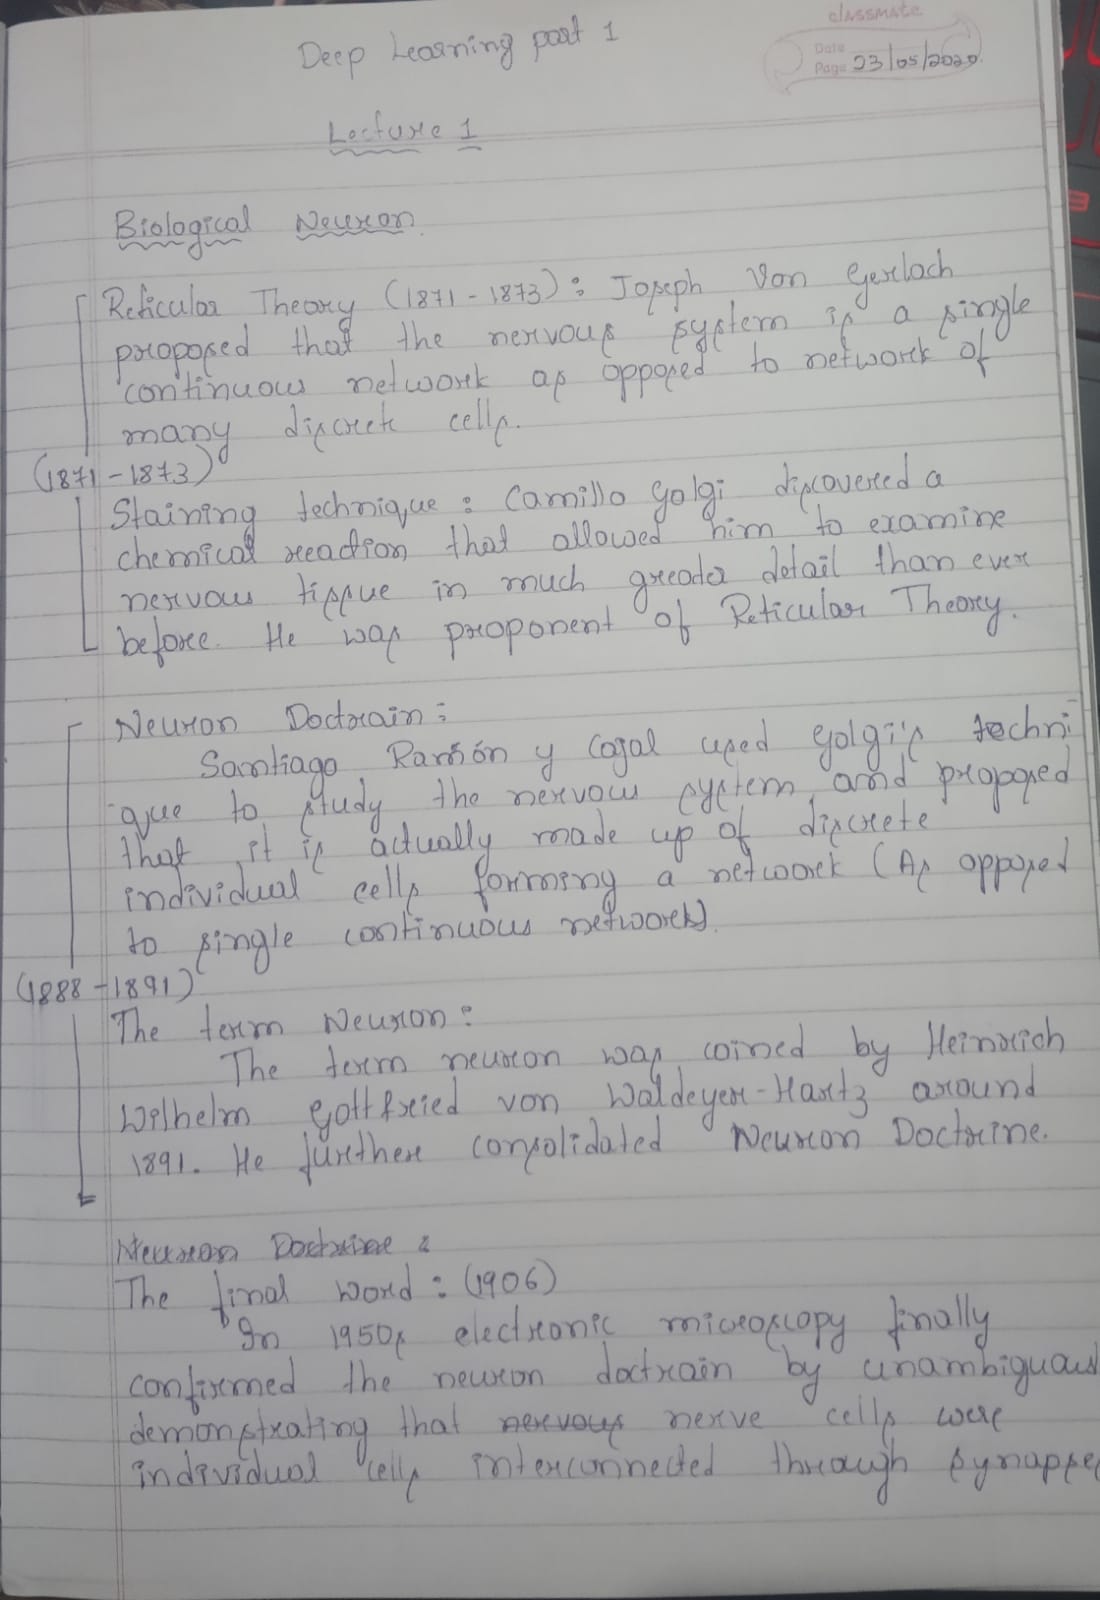 Deep Learning part 1
classmate
Date
Page 23/05/2020
Lecture 1
Biological Neuron
Reticular Theory (1871-1873): Joseph Von Gerlach
proposed that the nervous system is a single
continuous network as opposed to network of
many discrete cells.
(1871-1873)
Staining technique: Camillo Golgi discovered a
chemical reaction that allowed him to examine
nervous tissue in much greater detail than ever
before. He was proponent of Reticular Theory.
Neuron Doctrain:
Santiago Ramón y Cajal used golgi's techni
que to study the nervous system and proposed
that it is actually made up of discrete
individual cells forming a network (As opposed
to single continuous network).
(1888-1891)
The term Neuron:
The term neuron was coined by Heinrich
Wilhelm Gottfried von Waldeyer-Hartz around
1891. He further consolidated Neuron Doctrine.
Neuron Doctrine:
The final word: (1906)
In 1950s electronic microscopy finally
confirmed the neuron doctrain by unambiguous
demonstrating that nervous nerve cells were
individual cells interconnected through synapse